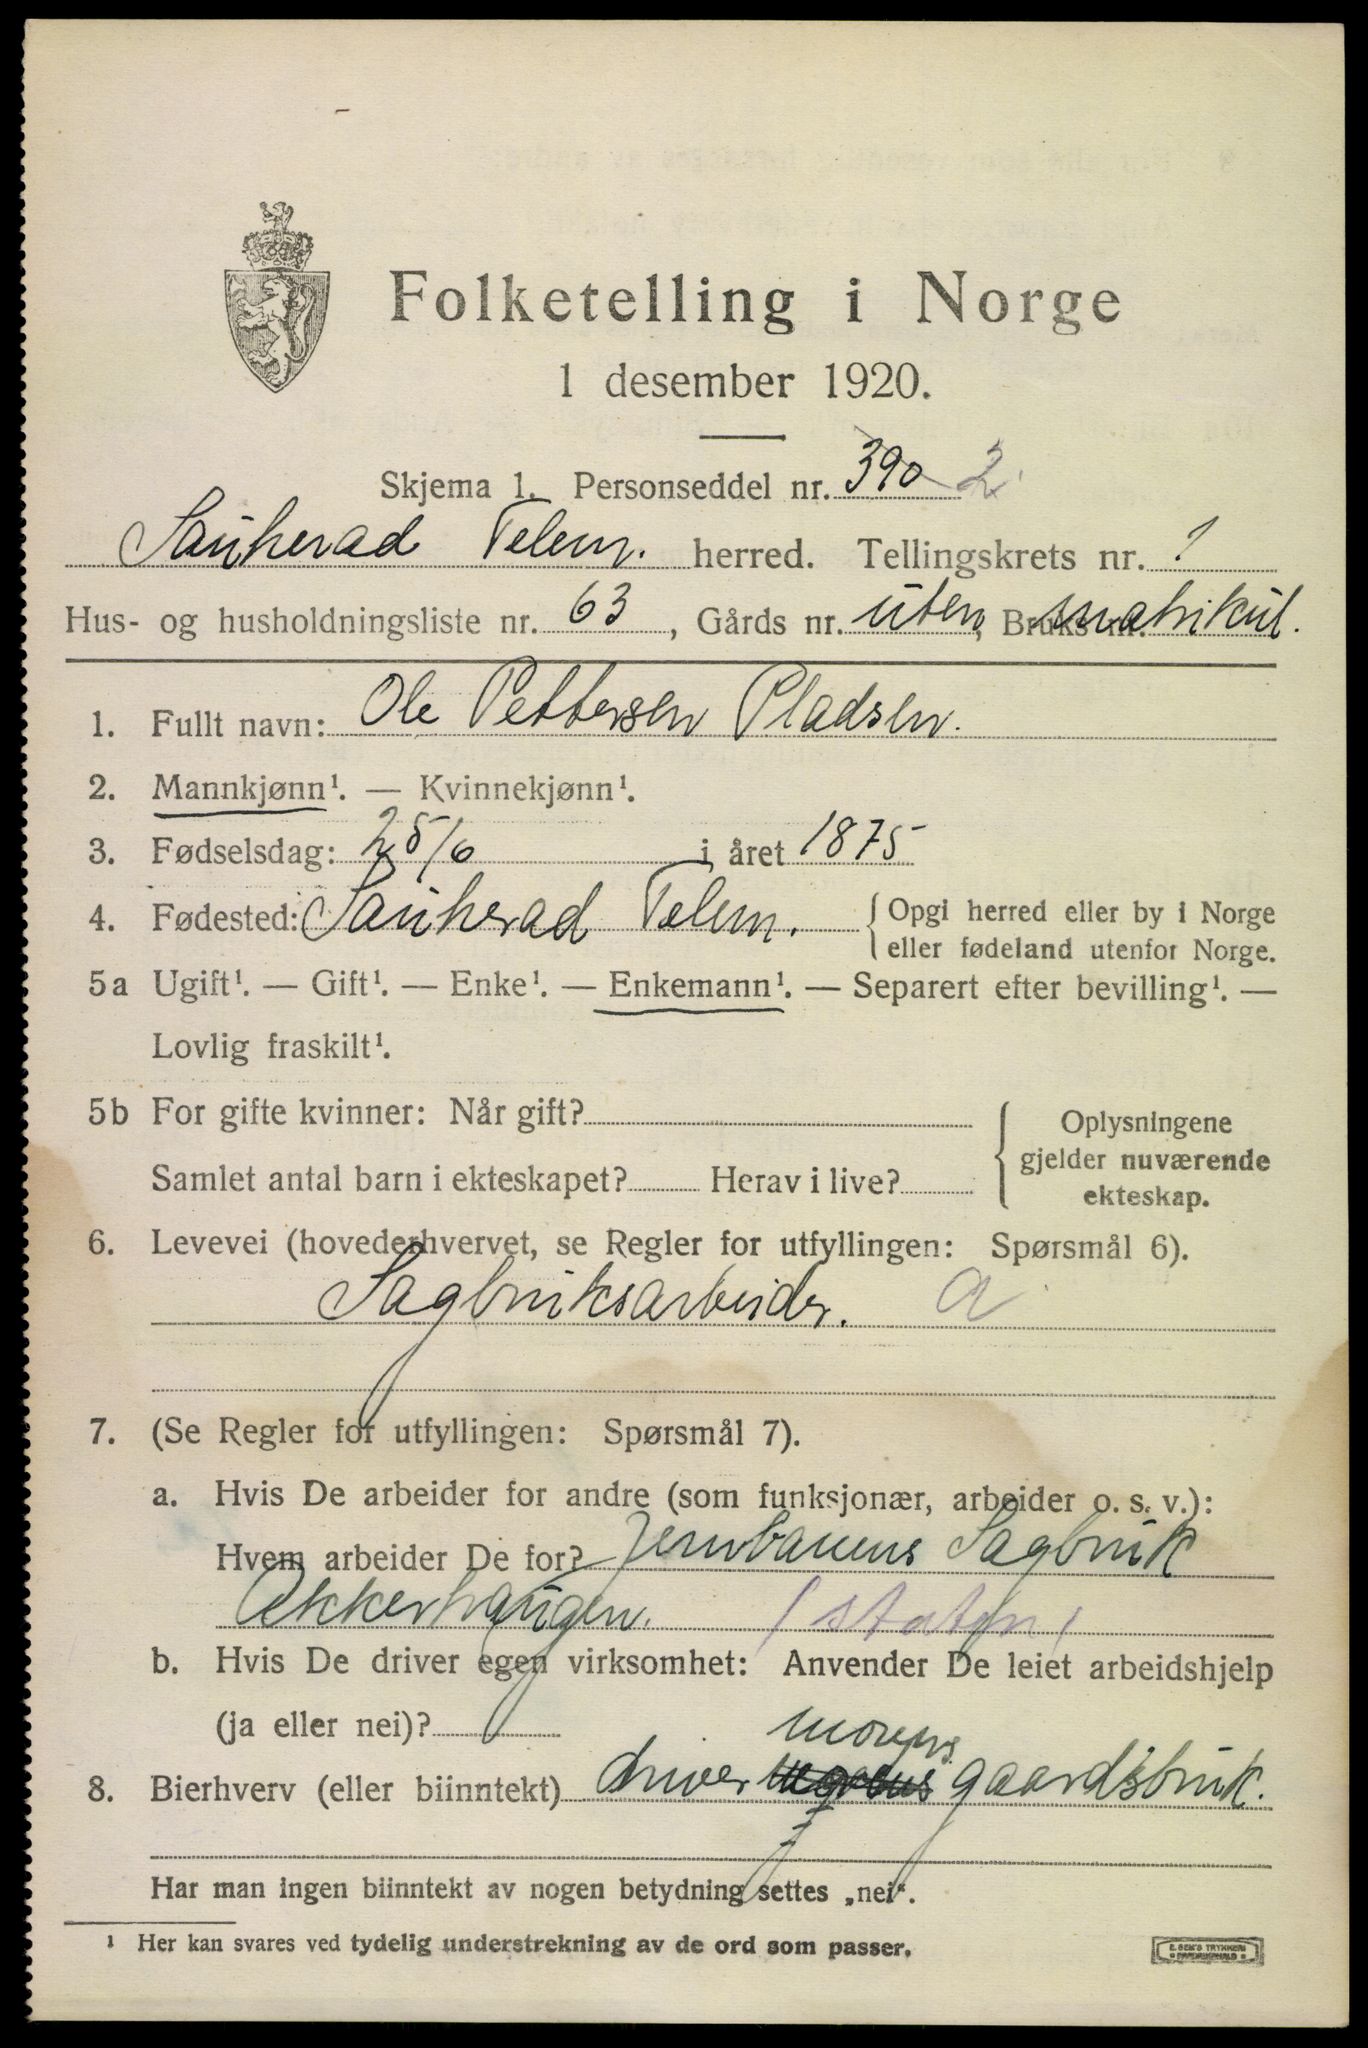 Folketelling i Norge
1 desember 1920.
Skjema 1. Personseddel nr. 390 2
Sauherad Telem. herred. Tellingskrets nr. 1
Hus- og husholdningsliste nr. 63, Gårds nr. uten, Bruks nr. matrikul.
1. Fullt navn: Ole Pettersen Pladsen.
2. Mannkjønn¹. — Kvinnekjønn¹.
3. Fødselsdag: 25/6 i året 1875
4. Fødested: Sauherad Telem. Opgi herred eller by i Norge
eller fødeland utenfor Norge.
5a Ugift¹. — Gift¹. — Enke¹. — Enkemann¹. — Separert efter bevilling¹. —
Lovlig fraskilt¹.
5b For gifte kvinner: Når gift?
Samlet antal barn i ekteskapet? Herav i live?
Oplysningene
gjelder nuværende
ekteskap.
6. Levevei (hovederhvervet, se Regler for utfyllingen: Spørsmål 6).
Sagbruksarbeider. a
7. (Se Regler for utfyllingen: Spørsmål 7).
a. Hvis De arbeider for andre (som funksjonær, arbeider o. s. v.):
Hvem arbeider De for? Jernbanens Sagbruk
Akkerhaugen. (staten)
b. Hvis De driver egen virksomhet: Anvender De leiet arbeidshjelp
(ja eller nei)?
morens
8. Bierhverv (eller biinntekt) driver gaardsbruk.
Har man ingen biinntekt av nogen betydning settes „nei".
¹ Her kan svares ved tydelig understrekning av de ord som passer.